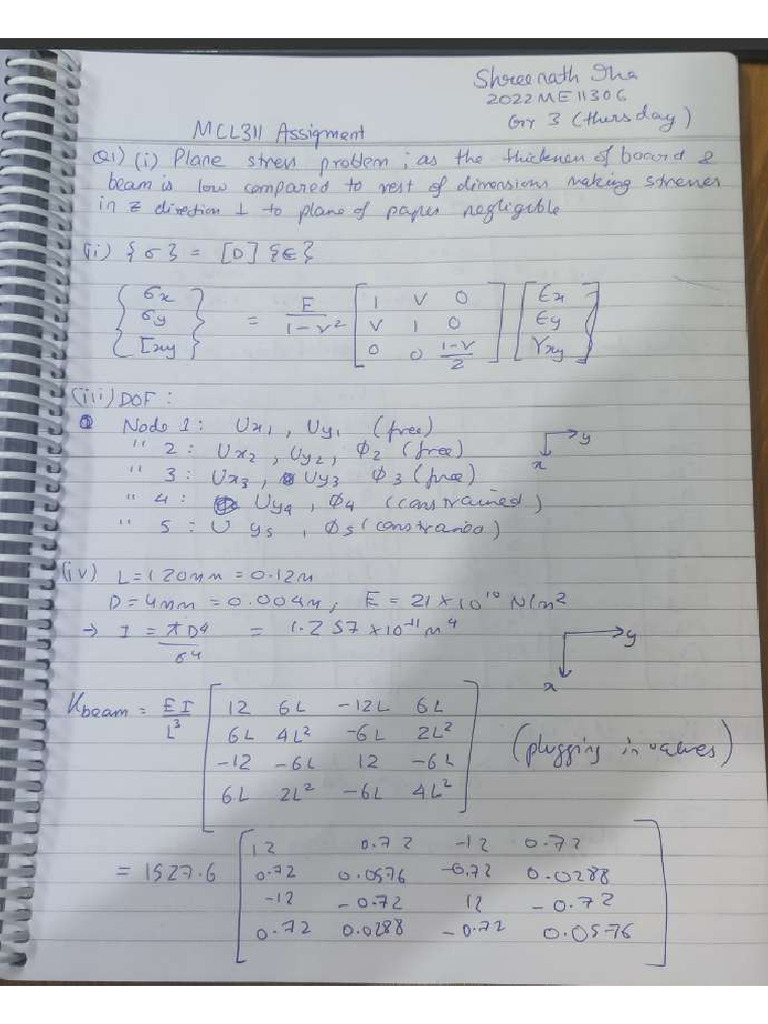 Shreenath Jha
2022ME11306
Gr 3 (thursday)
MCL311 Assigment
Q1) (i) Plane stress problem; as the thickness of board &
beam is low compared to rest of dimensions making stresses
in z direction ⊥ to plane of paper negligible
(ii) {σ} = [D] {ε}
{σx σy τxy} = E/(1-ν²) [1 ν 0
ν 1 0
0 0 (1-ν)/2] [εx εy γxy}
(iii) DOF:
Node 1: Ux1, Uy1 (free)
" 2: Ux2, Uy2, φ2 (free)
" 3: Ux3, Uy3 φ3 (free)
" 4: Uy4, φ4 (constrained)
" 5: U y5, φ5 (constrained)
y
x
(iv) L = 120mm = 0.12m
D = 4mm = 0.004m; E = 21×10¹⁰ N/m²
→ I = πD⁴/64 = 1.257×10⁻¹¹m⁴
y
x
Kbeam = EI/L³ [12 6L -12L 6L
6L 4L² -6L 2L²
-12 -6L 12 -6L
6L 2L² -6L 4L²]
(plugging in values)
= 1527.6 [12 0.72 -12 0.72
0.72 0.0576 -0.72 0.0288
-12 -0.72 12 -0.72
0.72 0.0288 -0.72 0.0576]